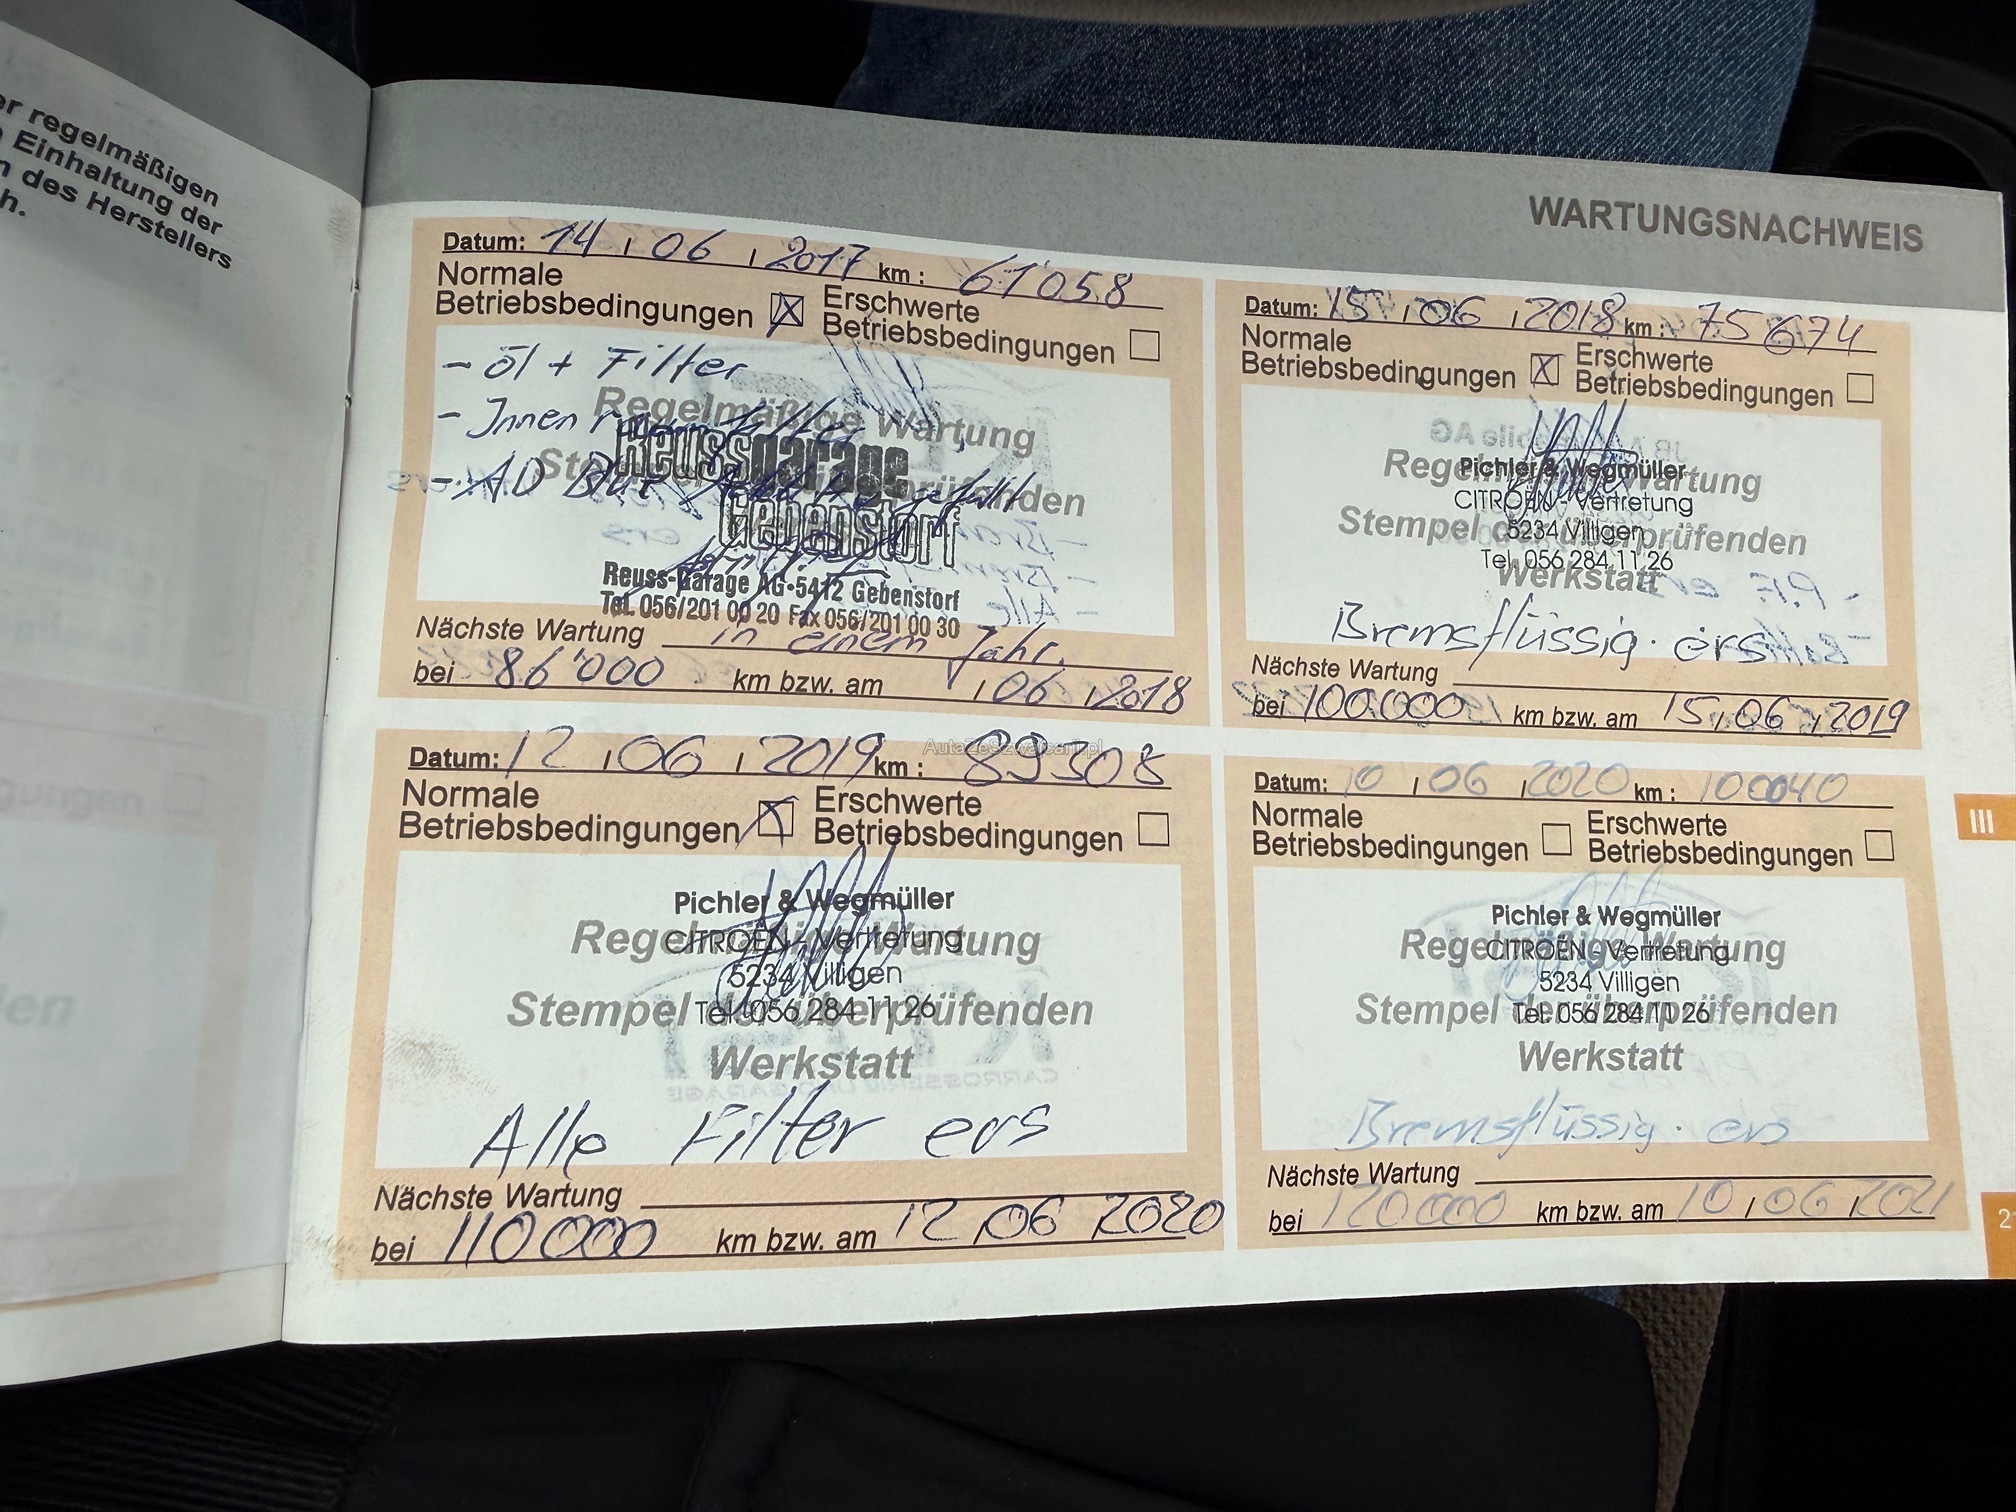 er regelmäßigen
Einhaltung der
n des Herstellers
h.
WARTUNGSNACHWEIS
Datum: 14 , 06 , 2017 km : 61'058
Normale
Betriebsbedingungen
Erschwerte
Betriebsbedingungen
- Öl + Filter
Regelmäßige Wartung
- Innenraum Filter
Reussgarage
Stempel der überprüfenden
- AD Blue gefüllt
Gebenstorf
Reuss-Garage AG·5412 Gebenstorf
Tel. 056/201 00 20 Fax 056/201 00 30
Nächste Wartung in einem Jahr.
bei 86'000 km bzw. am , 06 , 2018
Datum: 15 , 06 , 2018 km : 75674
Normale
Betriebsbedingungen
Erschwerte
Betriebsbedingungen
Regelmäßige Wartung
Pichler & Wegmüller
CITROËN - Vertretung
5234 Villigen
Stempel der überprüfenden
Tel. 056 284 11 26
Werkstatt
Bremsflüssig. ers
Nächste Wartung
bei 100000 km bzw. am 15 , 06 , 2019
AutaZeSzwajcarii.pl
Datum: 12 , 06 , 2019 km : 89308
Normale
Betriebsbedingungen
Erschwerte
Betriebsbedingungen
Pichler & Wegmüller
Regelmäßige Wartung
CITROËN - Vertretung
5234 Villigen
Stempel der überprüfenden
Tel. 056 284 11 26
Werkstatt
Alle Filter ers
Nächste Wartung
bei 110000 km bzw. am 12 , 06 2020
Datum: 10 , 06 , 2020 km : 100040
Normale
Betriebsbedingungen
Erschwerte
Betriebsbedingungen
Pichler & Wegmüller
Regelmäßige Wartung
CITROËN - Vertretung
5234 Villigen
Stempel der überprüfenden
Tel. 056 284 11 26
Werkstatt
Bremsflüssig. ers
Nächste Wartung
bei 120000 km bzw. am 10 , 06 , 2021
III
2